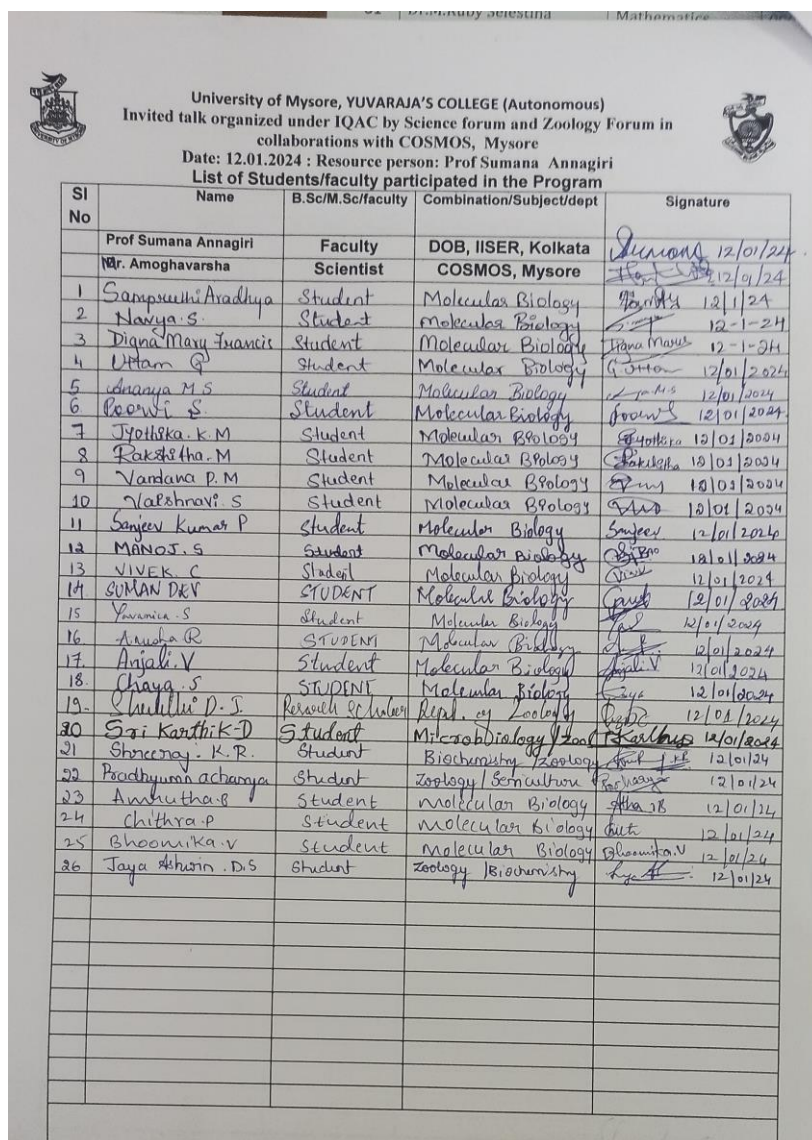 Dr.M.Ruby Selestina Mathematics
University of Mysore, YUVARAJA'S COLLEGE (Autonomous)
Invited talk organized under IQAC by Science forum and Zoology Forum in
collaborations with COSMOS, Mysore
Date: 12.01.2024 : Resource person: Prof Sumana Annagiri
List of Students/faculty participated in the Program
Sl No Name B.Sc/M.Sc/faculty Combination/Subject/dept Signature
Prof Sumana Annagiri Faculty DOB, IISER, Kolkata 12/01/24
Mr. Amoghavarsha Scientist COSMOS, Mysore 12/01/24
1 Sampruthi Aradhya Student Molecular Biology 12/1/24
2 Navya.S. Student Molecular Biology 12-1-24
3 Digna Mary Francis Student Molecular Biology 12-1-24
4 Uttam G Student Molecular Biology 12/01/2024
5 Ananya M S Student Molecular Biology 12/01/2024
6 Poorvi S Student Molecular Biology 12/01/2024
7 Jyothika.K.M Student Molecular Biology 12/01/2024
8 Rakshitha.M Student Molecular Biology 12/01/2024
9 Vandana P.M Student Molecular Biology 12/01/2024
10 Vaishnavi.S Student Molecular Biology 12/01/2024
11 Sanjeev Kumar P Student Molecular Biology Sanjeev 12/01/2024
12 MANOJ.S Student Molecular Biology 12/01/2024
13 VIVEK.C Student Molecular Biology 12/01/2024
14 SUMAN DEV STUDENT Molecular Biology 12/01/2024
15 Student Molecular Biology 12/01/2024
16 Anusha R STUDENT Molecular Biology 12/01/2024
17. Anjali.V Student Molecular Biology Anjali.V 12/01/2024
18. Chaya.S STUDENT Molecular Biology 12/01/2024
19. D.J. Research Scholar Dept. of Zoology 12/01/2024
20 Sri Karthik-D Student Microbiology/Zool 12/01/2024
21 Shreeraj.K.R. Student Biochemistry/Zoology 12/01/24
22 Pradhyumn acharya Student Zoology/Sericulture 12/01/24
23 Amrutha.B Student Molecular Biology 12/01/24
24 Chithra.P Student Molecular Biology 12/01/24
25 Bhoomika.V Student Molecular Biology Bhoomika.V 12/01/24
26 Jaya Ashwin.D.S Student Zoology/Biochemistry 12/01/24